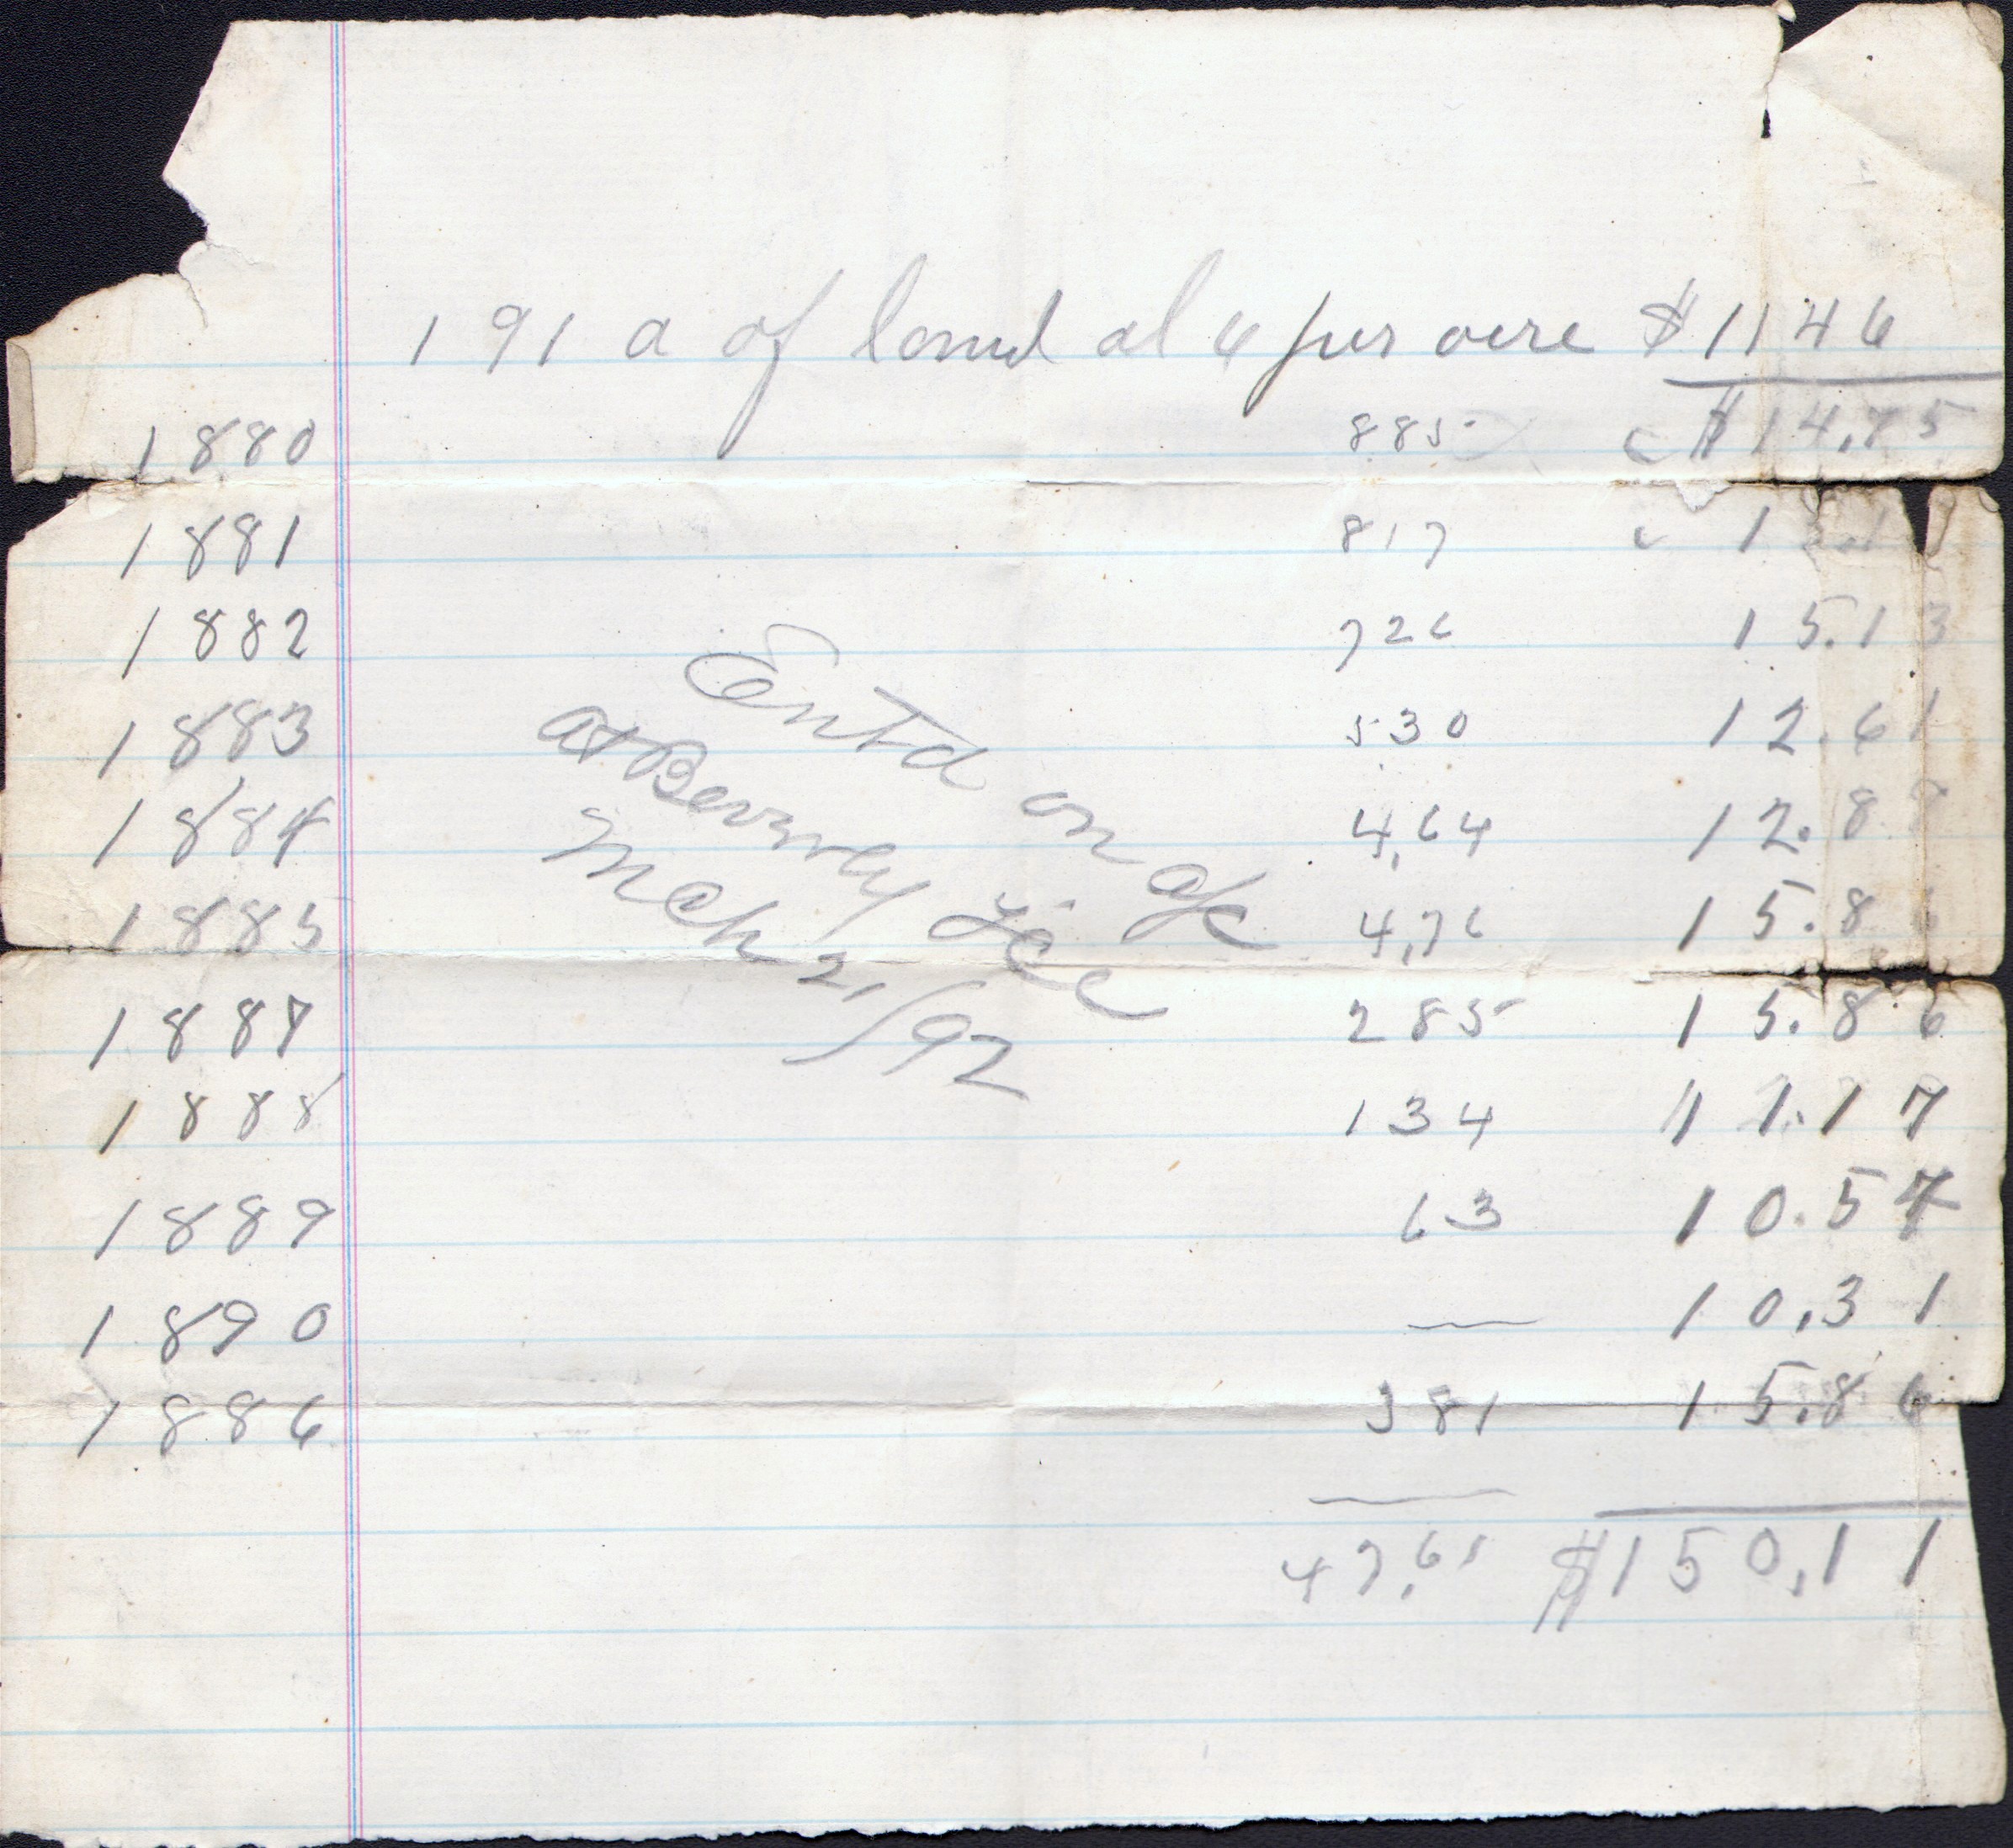 191 a of land at 6 per acre $1146
1880 885 $14,75
1881 817 1
1882 726 15.13
1883 530 12.61
1884 4,64 12.8
1885 4,76 15.86
1887 285 15.86
1888 134 11.17
1889 63 10.57
1890 — 10,31
1886 381 15.86
47,65 $150,11
Entd on a/c
at
Mch 21/92